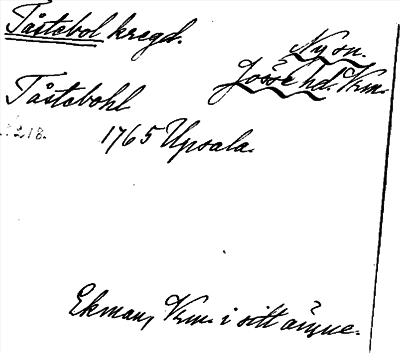 Tåstebol kregd.
Ny sn.
Jösse hd. Vrm.
Tåstebohl
1765 Upsala.
Ekman, Vrm. i sitt ämne.